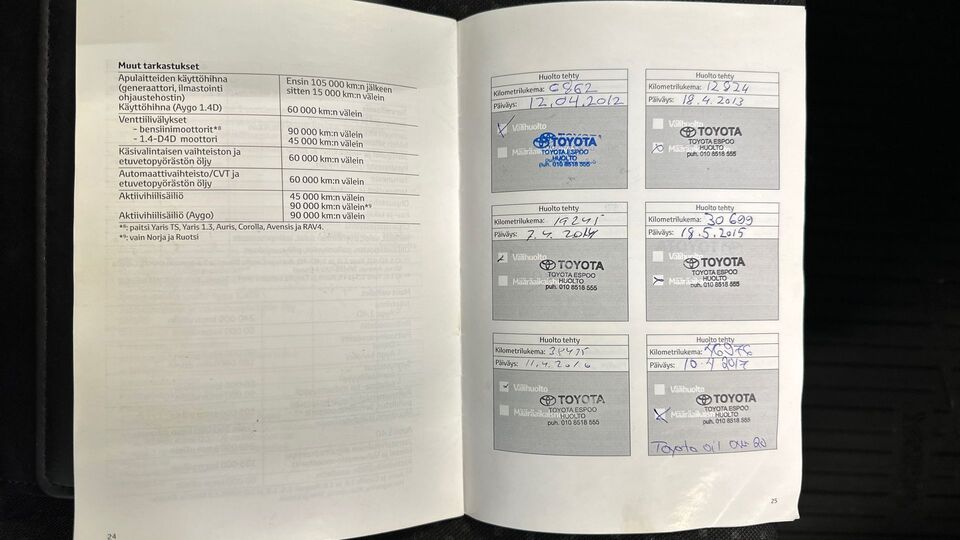 Muut tarkastukset
Apulaitteiden käyttöhihna
(generaattori, ilmastointi
ohjaustehostin)
Ensin 105 000 km:n jälkeen
sitten 15 000 km:n välein
Käyttöhihna (Aygo 1.4D)
60 000 km:n välein
Venttiilivälykset
- bensiinimoottorit*⁸
90 000 km:n välein
- 1.4-D4D moottori
45 000 km:n välein
Käsivalintaisen vaihteiston ja
etuvetopyörästön öljy
60 000 km:n välein
Automaattivaihteisto/CVT ja
etuvetopyörästön öljy
60 000 km:n välein
Aktiivihiilisäiliö
45 000 km:n välein
90 000 km:n välein*⁹
Aktiivihiilisäiliö (Aygo)
90 000 km:n välein
*⁸: paitsi Yaris TS, Yaris 1.3, Auris, Corolla, Avensis ja RAV4.
*⁹: vain Norja ja Ruotsi
24
Huolto tehty
Kilometrilukema: 6862
Päiväys: 12.04.2012
Välihuolto
TOYOTA
TOYOTA ESPOO
HUOLTO
puh. 010 8518 555
Huolto tehty
Kilometrilukema: 12824
Päiväys: 18.4.2013
TOYOTA
TOYOTA ESPOO
HUOLTO
puh. 010 8518 555
Huolto tehty
Kilometrilukema: 19245
Päiväys: 7.4.2014
Välihuolto
TOYOTA
TOYOTA ESPOO
HUOLTO
puh. 010 8518 555
Huolto tehty
Kilometrilukema: 30 699
Päiväys: 18.5.2015
TOYOTA
TOYOTA ESPOO
HUOLTO
puh. 010 8518 555
Huolto tehty
Kilometrilukema: 38475
Päiväys: 11.4.2016
Välihuolto
TOYOTA
TOYOTA ESPOO
HUOLTO
puh. 010 8518 555
Huolto tehty
Kilometrilukema: 46976
Päiväys: 10.4 2017
TOYOTA
TOYOTA ESPOO
HUOLTO
puh. 010 8518 555
Toyota oil 0w 20
25